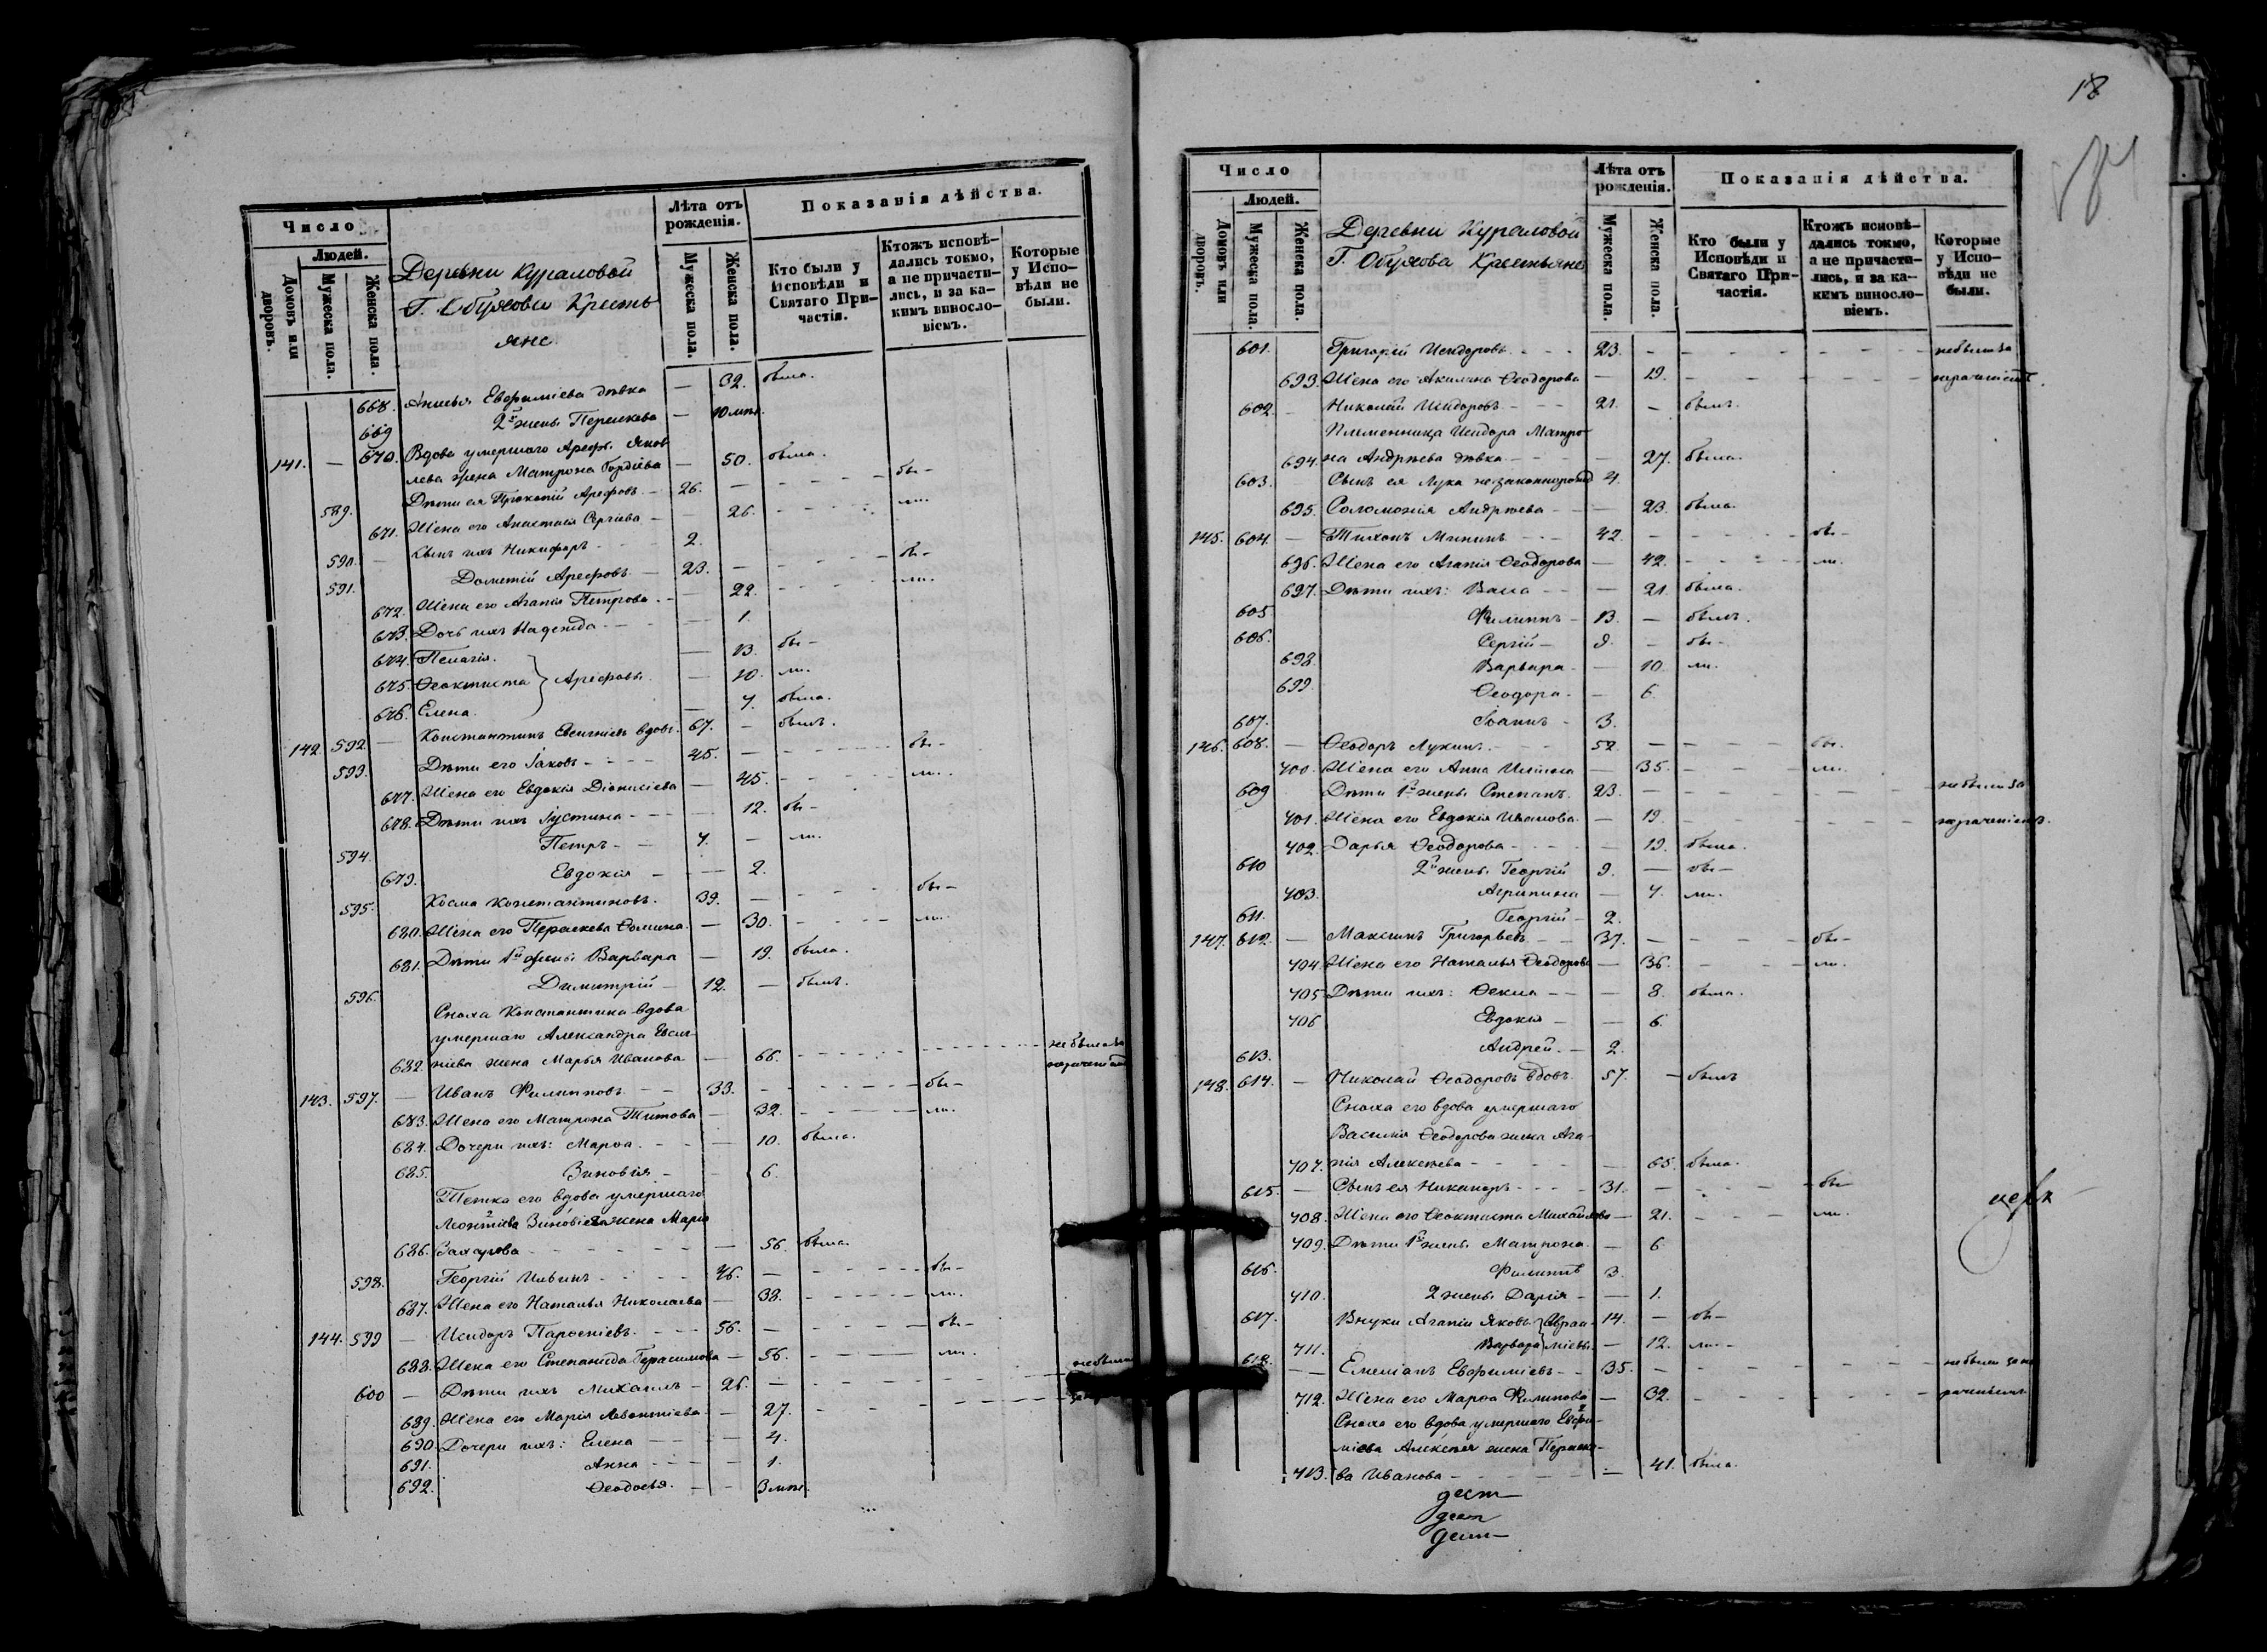 Число
Людей.
Домовъ или дворовъ.
Мужеска пола.
Женска пола.
Деревни Кураловой
Г. Обухова Кресть
яне
Лѣта отъ рожденія.
Мужеска пола.
Женска пола.
Показанія дѣйства.
Кто были у Исповѣди и Святаго Причастія.
Ктожъ исповѣдались токмо, а не причастились, и за какимъ винословіемъ.
Которые у Исповѣди не были.
668. Анисья Евфиміева дѣвка — 32. была.
669 2й жены Пераскева — 10 мѣс.
141. — 670. Вдова умершаго Ареф. Яков
лева жена Матрона Гордѣева — 50. была.
589. Дѣти ея Прокопій Арефовъ. — 26. — бы-
671. Жена его Анастасія Сергіева — 26. ли.
590. — Сынъ ихъ Никифоръ 2.
591. Дометій Арефовъ — 23. — бы-
672. Жена его Агапія Петрова. — 22. ли.
673. Дочь ихъ Надежда — 1.
674. Пелагія. — 13. бы-
675. Ѳеоктиста } Арефовы — 10. ли.
676. Елена. — 7. была.
142 592 — Константинъ Евсигніевъ вдовъ. 67. — былъ.
593. Дѣти его Іаковъ 45. — бы-
677. Жена его Евдокія Діонисіева — 45. ли.
678. Дѣти ихъ Іустина — 12. бы-
594. Петръ — 7. — ли.
679. Евдокія — 2.
595. Косма Константиновъ. 39. — бы-
680. Жена его Пераскева Ѳомина. — 30. ли.
681. Дѣти 1й жены Варвара — 19. была.
596. Димитрій — 12. — былъ.
Сноха Константина вдова
умершаго Александра Евсиг-
682. ніева жена Марья Иванова — 66. не была за
143. 597. — Иванъ Филипповъ. 33. — бы-
683. Жена его Матрона Титова — 32. ли.
684. Дочери ихъ: Марѳа. — 10. была.
685. Зиновія — 6.
Тетка его вдова умершаго
Леонтіева Зиновіева жена Марія
686. Захарова — 56. была.
598. Георгій Ильинъ 46. — бы-
687. Жена его Наталья Николаева — 38. ли.
144. 599 — Исидоръ Парѳеніевъ. 56. — бы-
688. Жена его Степанида Герасимова — 56. ли.
600 — Дѣти ихъ Михаилъ — 26. — не были
689. Жена его Марія Леонтіева — 27.
690. Дочери ихъ: Елена — 4.
691. Анна — 1.
692. Ѳеодосья. — 3 мѣс.
18
Число
Людей.
Домовъ или дворовъ.
Мужеска пола.
Женска пола.
Деревни Кураловой
Г. Обухова Крестьяне
Лѣта отъ рожденія.
Мужеска пола.
Женска пола.
Показанія дѣйства.
Кто были у Исповѣди и Святаго Причастія.
Ктожъ исповѣдались токмо, а не причастились, и за какимъ винословіемъ.
Которые у Исповѣди не были.
601. Григорій Исидоровъ 23. — не были за
693. Жена его Акилина Ѳеодорова — 19. нерачѣніемъ.
602. — Николай Исидоровъ 21. — былъ.
Племянница Исидора Матро-
694. на Андрѣева дѣвка — 27. была.
603. Сынъ ея Лука незаконнорожд 4.
695. Соломонія Андрѣева — 23. была.
145. 604. — Тихонъ Мининъ 42. — бы-
696. Жена его Агапія Ѳеодорова — 42. ли.
697. Дѣти ихъ: Васса — 21. была.
605. Филиппъ — 13. — былъ.
606. Сергій — 9. — бы-
698. Варвара — 10. ли.
699. Ѳеодора. — 6.
607. Іоаннъ — 3.
146. 608. — Ѳеодоръ Лукинъ 52. — бы-
700. Жена его Анна — 35. ли.
609 Дѣти 1й жены Степанъ. 23. — не были за
701. Жена его Евдокія Иванова. — 19. нерачѣніемъ.
702. Дарья Ѳеодорова — 19. была.
610 2й жены Георгій 9. — бы-
703. Агрипина — 7. ли.
611. Георгій — 2.
147. 612. — Максимъ Григорьевъ 37. — бы-
704. Жена его Наталья Ѳеодорова — 36. ли.
705 Дѣти ихъ: Ѳекла — 8. была.
706 Евдокія — 6.
613. Андрей. — 2.
148. 614. — Николай Ѳеодоровъ вдовъ 57. — былъ
Сноха его вдова умершаго
Василія Ѳеодорова жена Ага-
707. пія Алексѣева — 65. была.
615. — Сынъ ея Никаноръ 31. — бы-
708. Жена его Ѳеоктиста Михайлова — 21. ли.
709. Дѣти 1й жены Матрона. — 6.
616. Филиппъ 3.
710. 2 жены Дарія — 1.
617. Внуки Агапіи Яковъ } Авраа- 14. — бы-
711. Варвара } міевы — 12. ли.
618. — Емеліанъ Евфиміевъ 35. — не были за не
712. Жена его Марѳа Филипова — 32. рачѣніемъ
Сноха его вдова умершаго Евфи-
міева Алексѣя жена Параске-
713. ва Иванова — 41. была.
церк